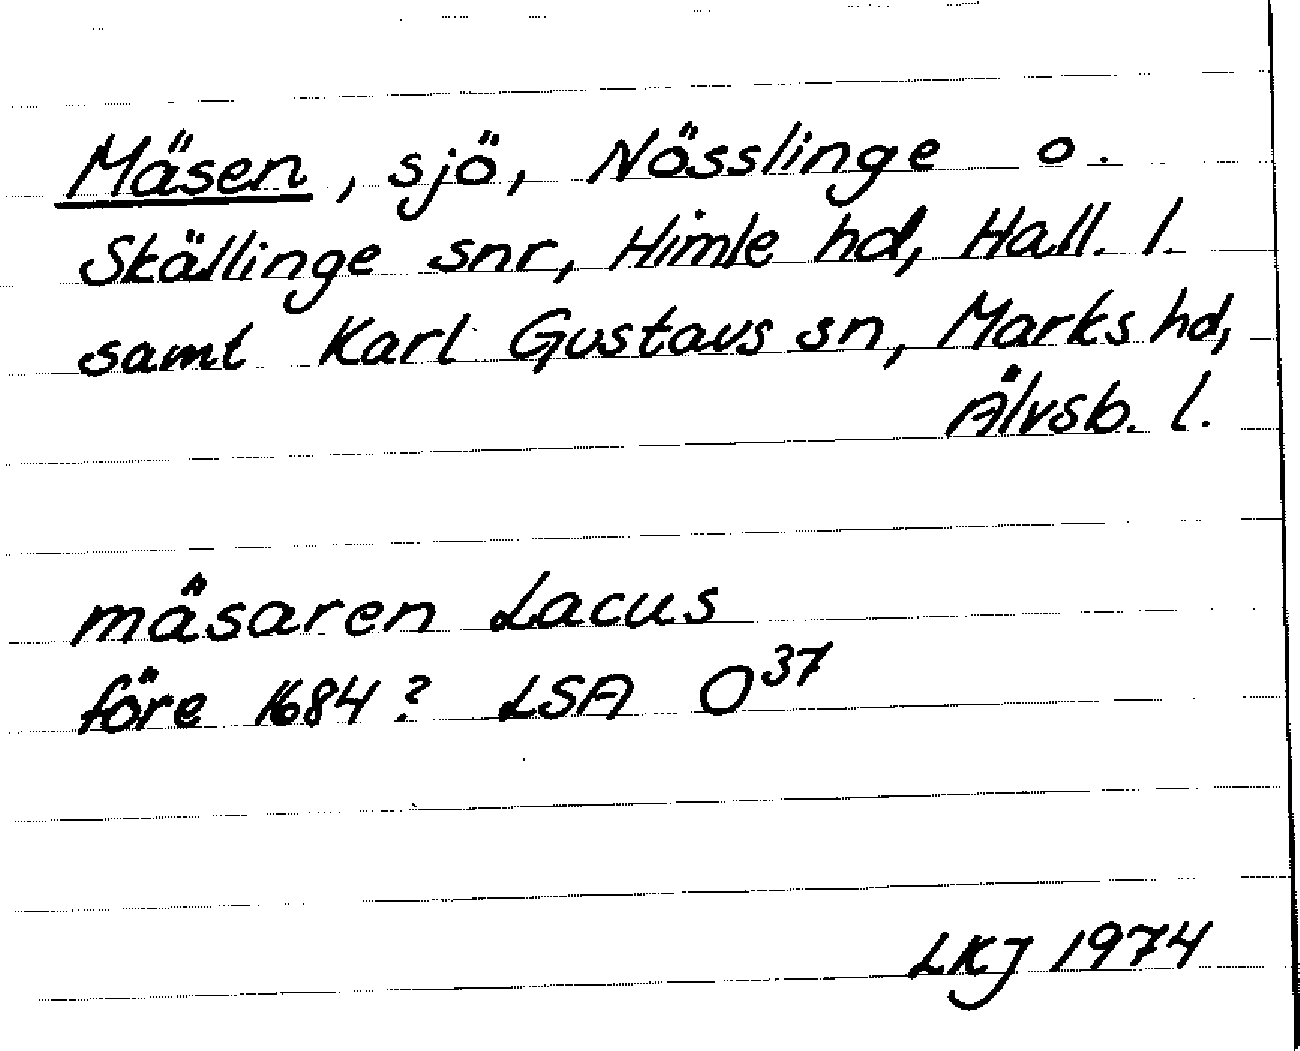 Mäsen, sjö, Nösslinge o.
Skällinge snr, Himle hd, Hall. l.
samt Karl Gustavs sn, Marks hd,
Älvsb. l.
mäsaren Lacus
före 1684? LSA O³⁷
LKJ 1974